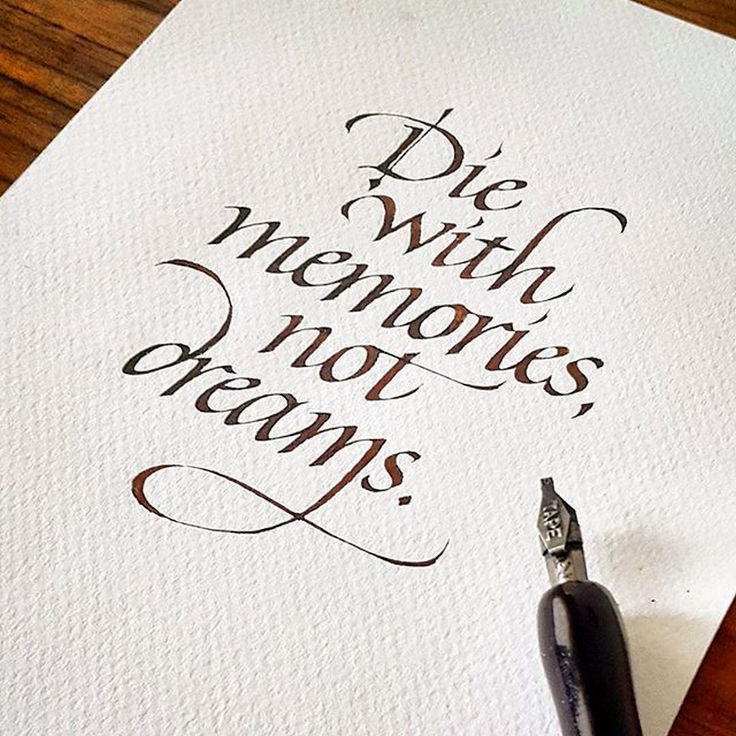 Die
with
memories,
not
dreams.
TAPE